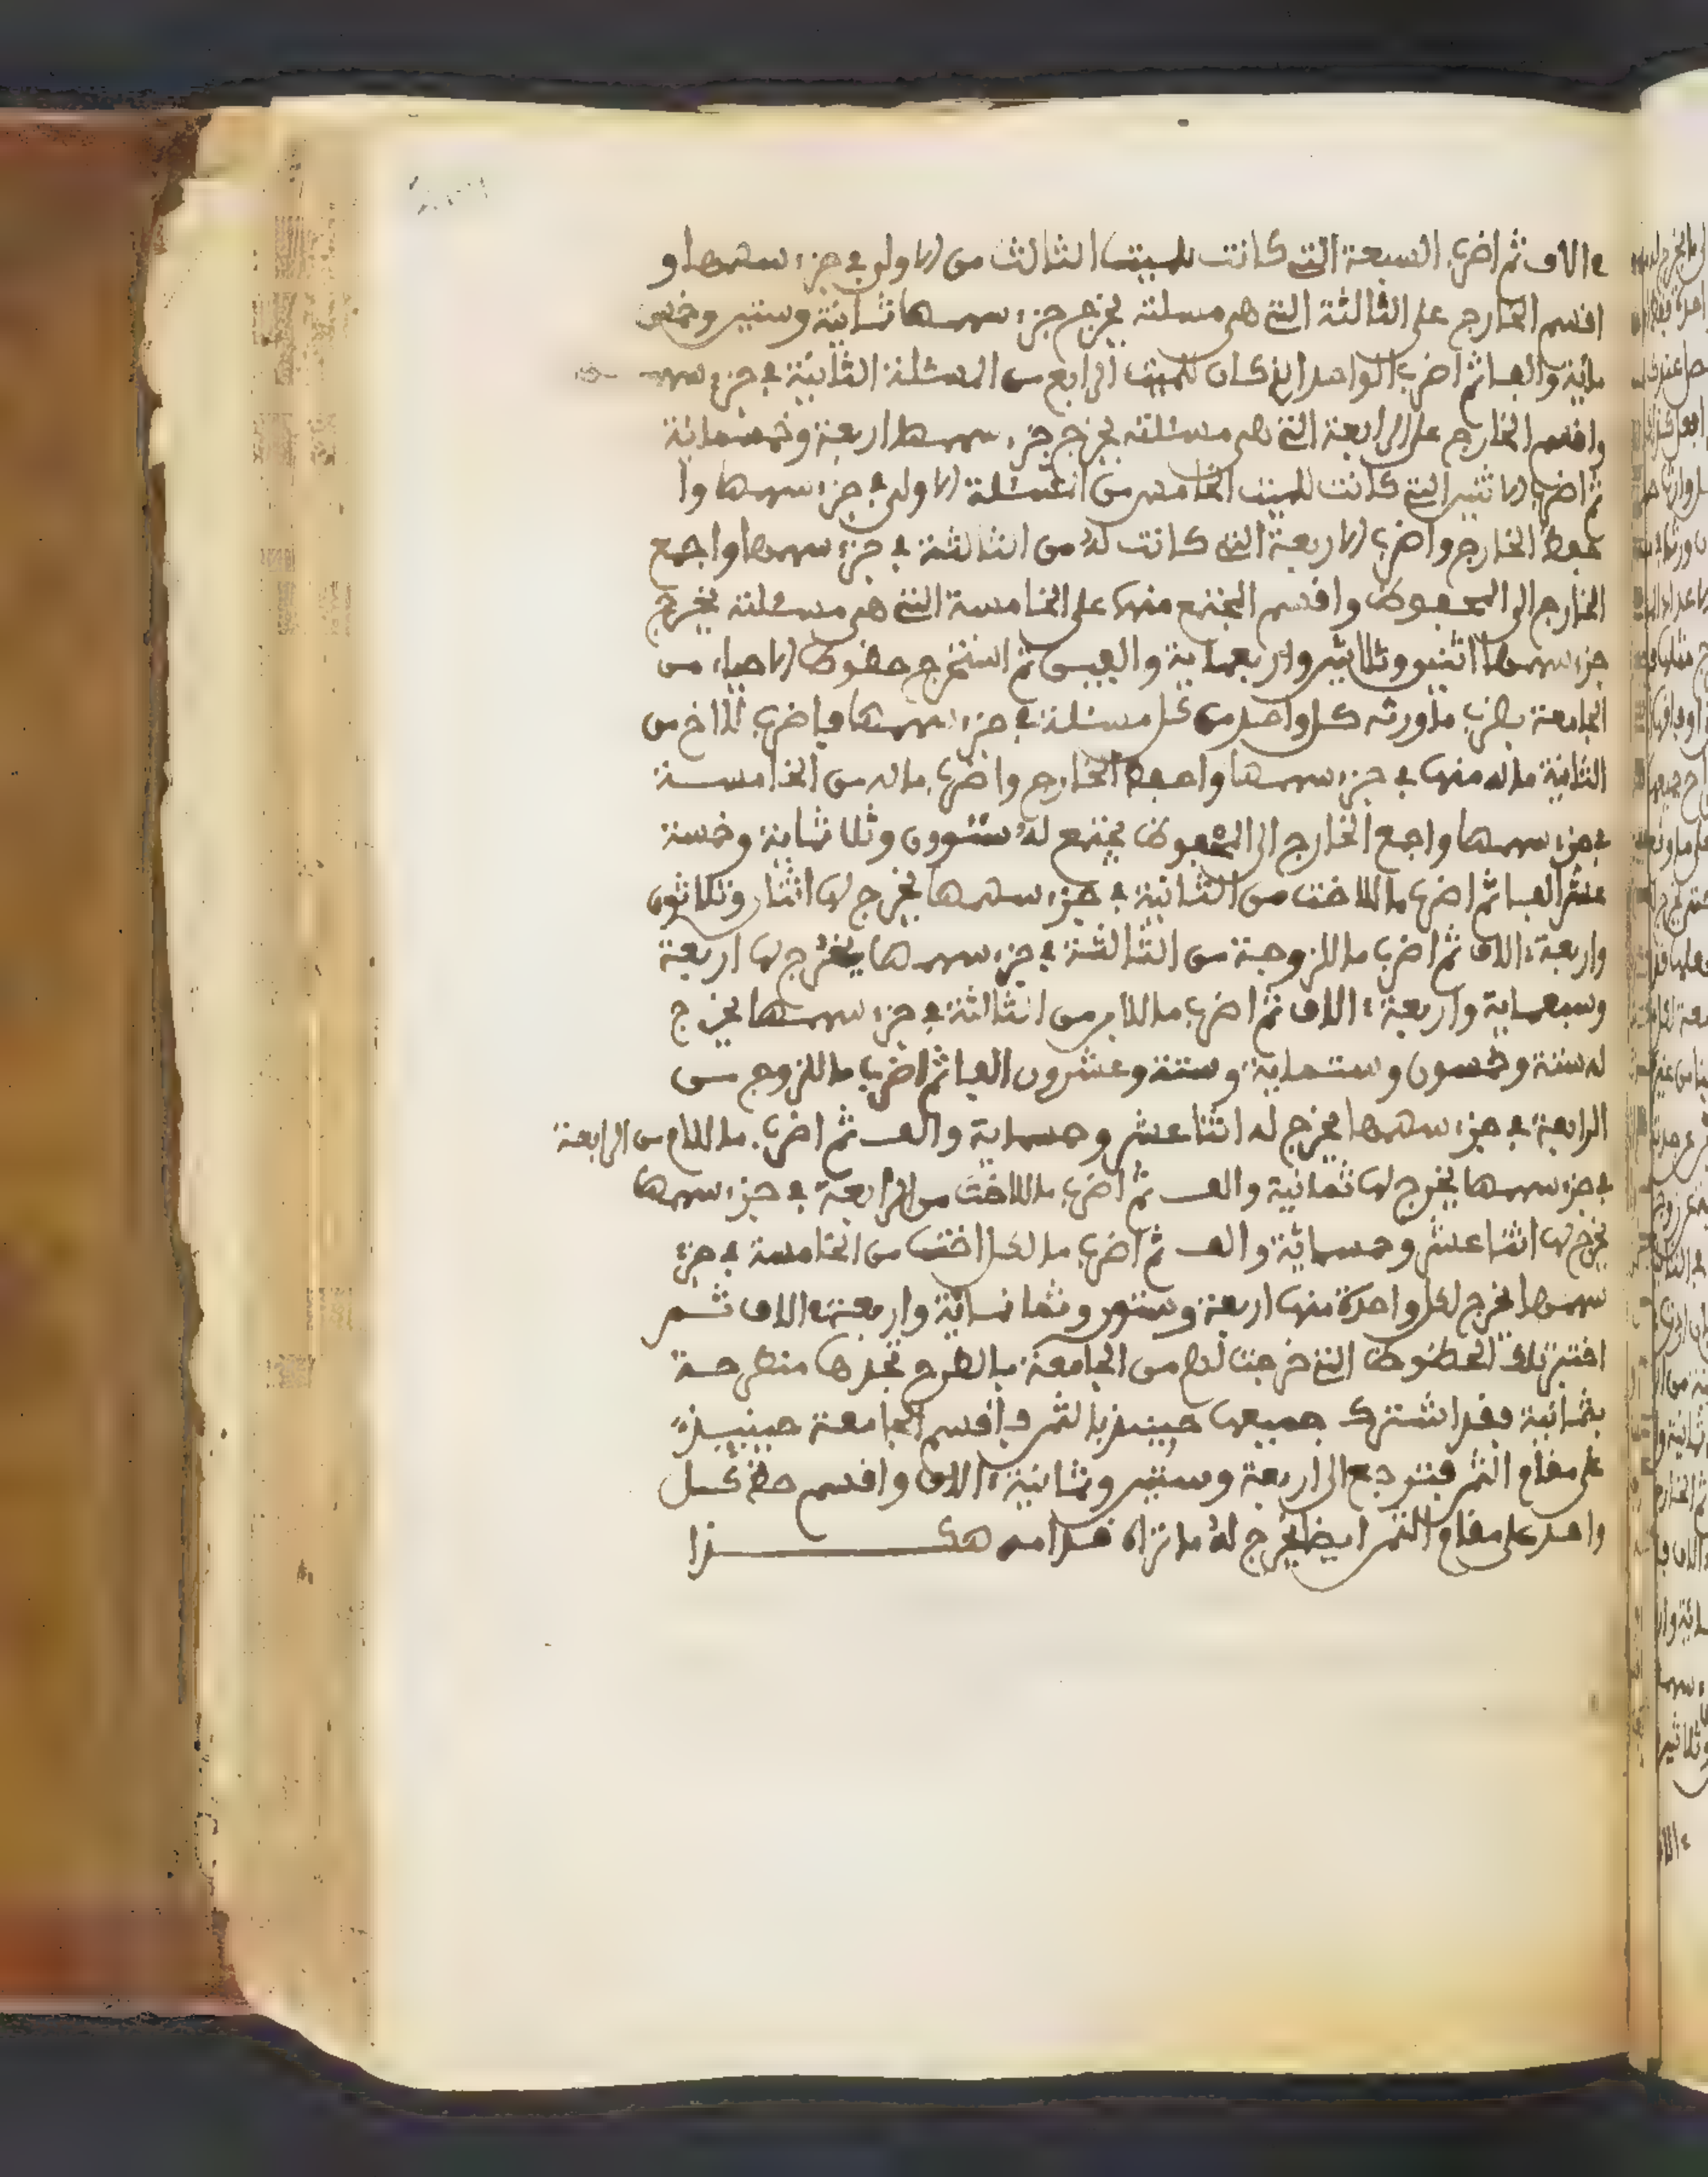 ءالاف ثم اضرب السبعة التي كانت للميت الثالث من الاولى في جزء سهمها و
اقسم الخارج على الثالثة التي هي مسئلته يخرج جزء سهمها ثمانية وستين وخمس
مائة والفا ثم اضرب الواحد الذي كان للميت الرابع من المسئلة الثانية في جزء سهمـ
واقسم الخارج على الرابعة التي هي مسئلته يخرج جزء سهمها اربعة وخمسمائة
ثم اضرب الاثنين التي كانت للميت الخامس من المسئلة الاولى في جزء سهمها وا
حفظ الخارج واضرب الاربعة التي كانت له من الثالثة في جزء سهمها واجمع
الخارج الى المحفوظ واقسم المجتمع منهما على الخامسة التي هي مسئلته يخرج
جزء سهمها اثنين وثلاثين واربعماية والفين ثم استخرج حظوظ الاحياء من
الجامعة بضرب ما ورثه كل واحد من كل مسئلة في جزء سهمها فاضرب للاخ من
الثانية ماله منها في جزء سهمها واحفظ الخارج واضرب ماله من الخامسة
في جزء سهمها واجمع الخارج الى المحفوظ يجتمع له ستون وثلاثماية وخمسة
عشر الفا ثم اضرب ما للاخت من الثانية في جزء سهمها يخرج لها اثنان وثلاثون
واربعة ءالاف ثم اضرب ما للزوجة من الثالثة في جزء سهمها يخرج لها اربعة
وسبعماية واربعة ءالاف ثم اضرب ما للابن من الثالثة في جزء سهمها يخرج
له ستة وخمسون وستماية وستة وعشرون الفا ثم اضرب ما للزوج من
الرابعة في جزء سهمها يخرج له اثنا عشر وخمسماية والف ثم اضرب ما للام من الرابعة
في جزء سهمها يخرج لها ثمانية والف ثم اضرب ما للاخت من الرابعة في جزء سهمها
يخرج لها اثنا عشر وخمسمائة والف ثم اضرب ما لكل اخت من الخامسة في جزء
سهمها يخرج لكل واحدة منها اربعة وستون وثمانمائة واربعة ءالاف ثم
اختبر تلك الحظوظ التي خرجت لهم من الجامعة بالطرح تجدها منطرحة
بثمانية فقد اشترك جميعها حينئذ بالثمن فاقسم الجامعة حينئذ
على مقام الثمن فترجع الى اربعة وستين وثمانية ءالاف واقسم حظ كل
واحد على مقام الثمن ايضا يخرج له ما تراه قدامه هكذا